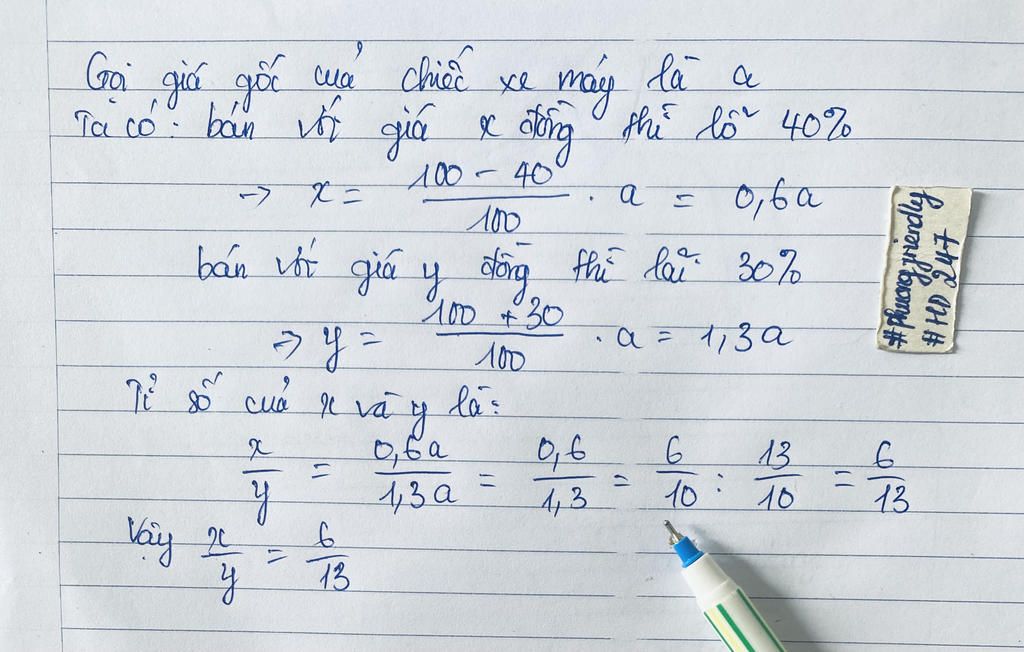 Gọi giá gốc cuả chiếc xe máy là a
Ta có: bán với giá x đồng thì lỗ 40%
→ x = (100 - 40)/100 . a = 0,6a
bán với giá y đồng thì lãi 30%
⇒ y = (100 + 30)/100 . a = 1,3a
Tỉ số cuả x và y là:
x/y = 0,6a/1,3a = 0,6/1,3 = 6/10 : 13/10 = 6/13
Vậy x/y = 6/13
#phuongfriendly
#HD247